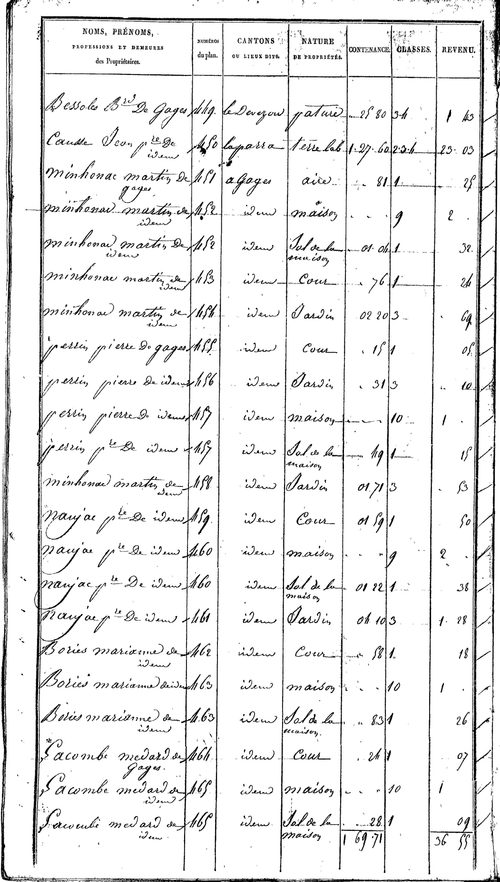 NOMS, PRÉNOMS, PROFESSIONS ET DEMEURES des Propriétaires. NUMÉROS du plan. CANTONS OU LIEUX DITS. NATURE DE PROPRIÉTÉS. CONTENANCE. CLASSES. REVENU.
Bessoles B.rd De Gages 449. le Devezou pature 25 80 3.4 1 43
Causse Jean p.re De idem 450 laparra terre lab 1. 27. 60 2.3.4 23 03
minhonac martin De gages 451 a Gages aire 81 1 25
minhonac martin de idem 452 idem maison 9 2
minhonac martin De idem 452 idem Sol de la maison 01 04 1 32
minhonac martin de idem 453 idem Cour 76 1 24
minhonac martin de idem 454 idem Jardin 02 20 3 69
perrin pierre De gages 455 idem Cour 15 1 05
perrin pierre de idem 456 idem Jardin 31 3 10
perrin pierre de idem 457 idem maison 10 1
perrin p.re De idem 457 idem Sol de la maison 49 1 15
minhonac martin de idem 458 idem Jardin 01 71 3 53
naujac p.re De idem 459 idem Cour 01 59 1 50
naujac p.re De idem 460 idem maison 9 2
naujac p.re De idem 460 idem Sol de la maison 01 22 1 38
naujac p.re De idem 461 idem Jardin 04 10 3 1 28
Bories marianne de idem 462 idem Cour 58 1 18
Bories marianne de idem 463 idem maison 10 1
Bories marianne de idem 463 idem Sol de la maison 83 1 26
Lacombe medard de Gages 464 idem Cour 24 1 07
Lacombe medard de idem 465 idem maison 10 1
Lacombe medard de idem 465 idem Sol de la maison 28 1 09
1 69 71 36 55